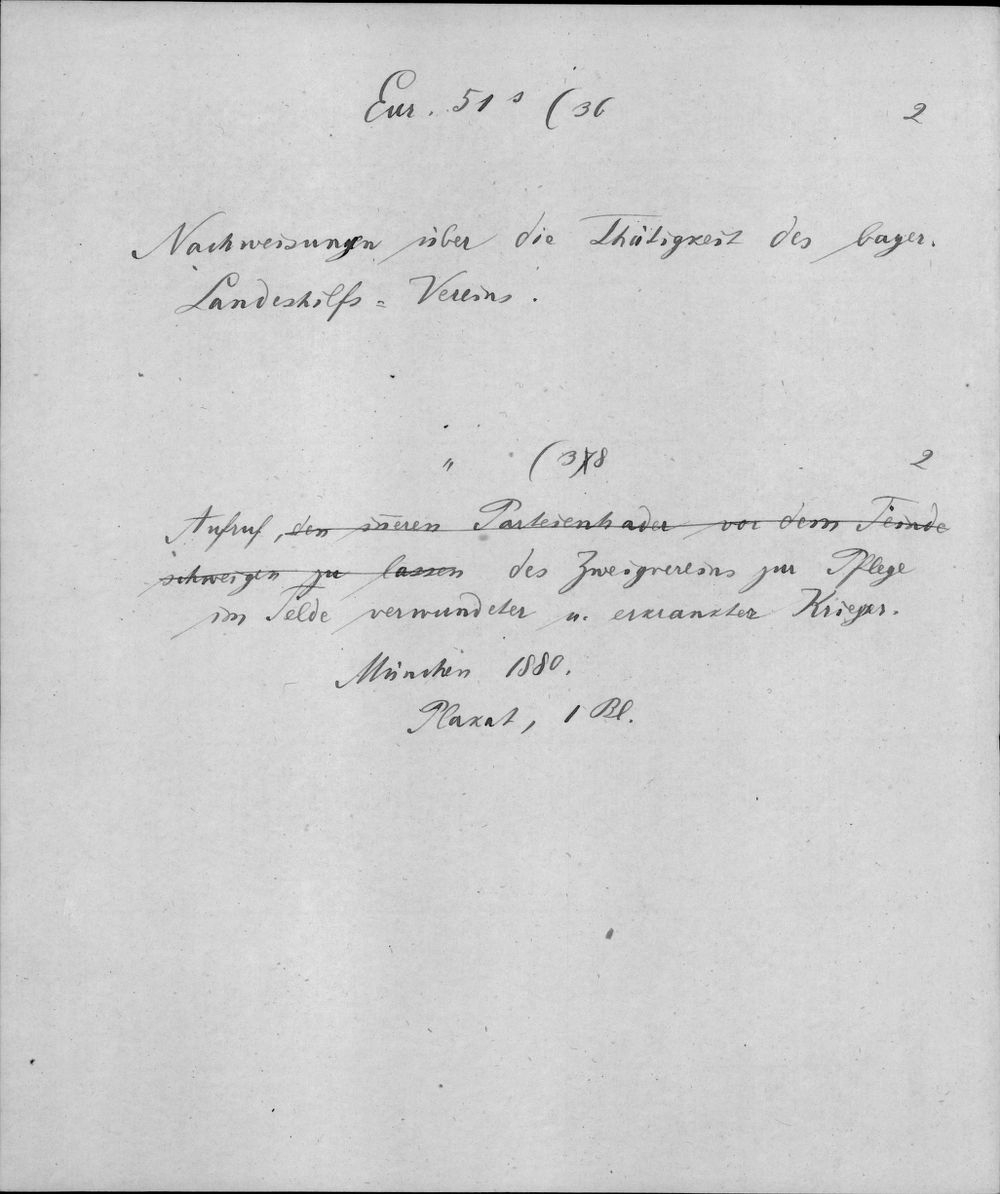 Eur. 51 s (36 2
Nachweisungen über die Thätigkeit des bayer.
Landeshilfs = Vereins.
" (378 2
Aufruf, den in̅eren Parteienhader vor dem Feinde
schweigen zu lassen des Zweigvereins zur Pflege
im Felde verwundeter u. erkrankter Krieger.
München 1880.
Plakat, 1 Bl.